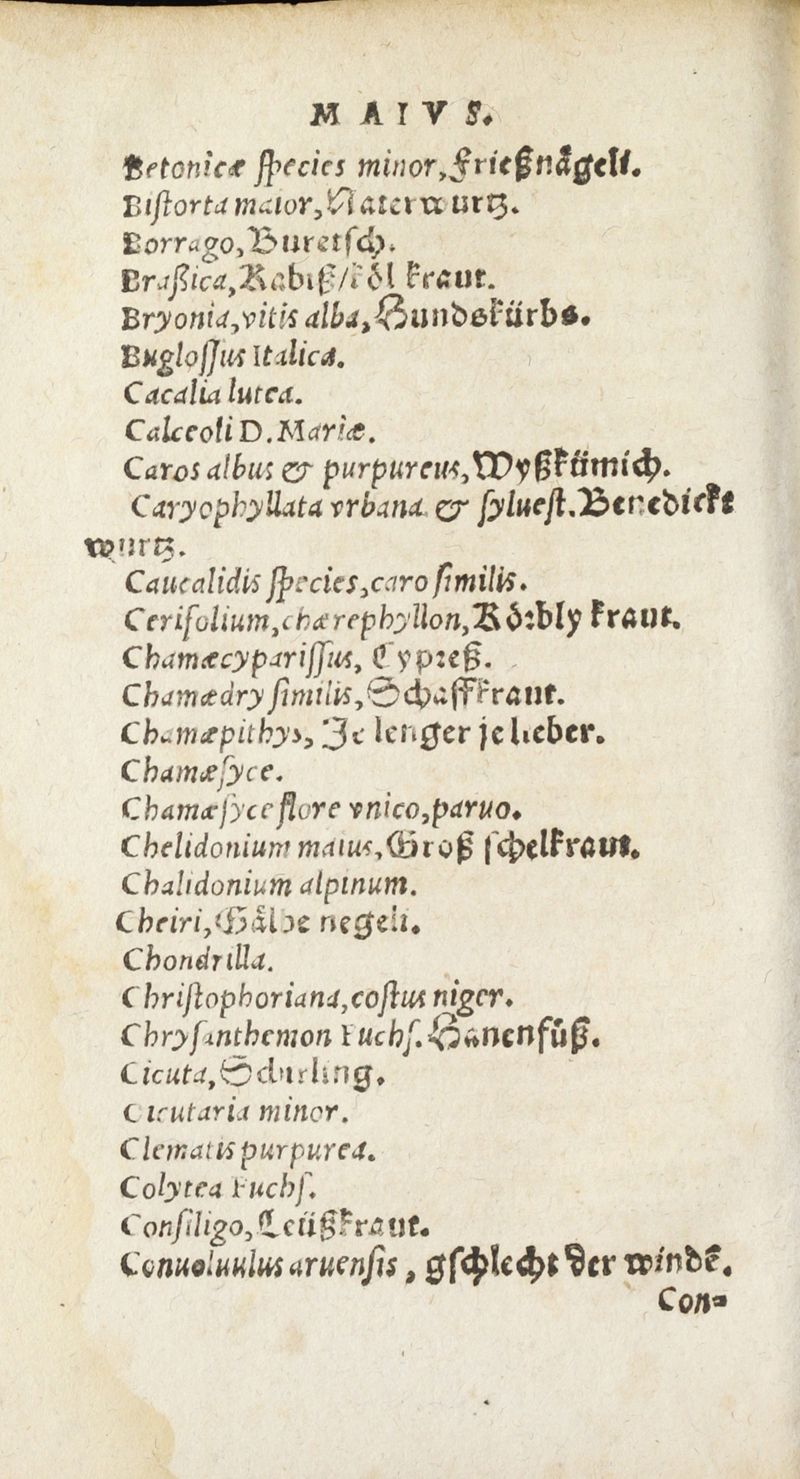 MAIVS.
Betonicæ species minor, Frießnågeli.
Bistorta maior, Naterwurtz.
Borrago, Buretsch.
Braßica, Kabiß/köl kraut.
Bryonia, vitis alba, Hundskürbs.
Buglossus Italica.
Cacalia lutea.
Calceoli D. Mariæ.
Caros albus & purpureus, Wyßkümich.
Caryophyllata vrbana & syluest. Benedickt
wurtz.
Caucalidis species, caro similis.
Cerifolium, chærephyllon, Körbly kraut.
Chamæcyparissus, Cypreß.
Chamædry similis, Schaffkraut.
Chamæpithys, Je lenger je lieber.
Chamæsyce.
Chamæsyce flore vnico, paruo.
Chelidonium maius, Groß schelkraut.
Chalidonium alpinum.
Cheiri, Gålbe negeli.
Chondrilla.
Christophoriana, costus niger.
Chrysanthemon Fuchs. Hanenfůß.
Cicuta, Schirling.
Cicutaria minor.
Clematis purpurea.
Colytea Fuchs.
Consiligo, Leüßkraut.
Conuoluulus aruensis, gschlechter winde.
Con=